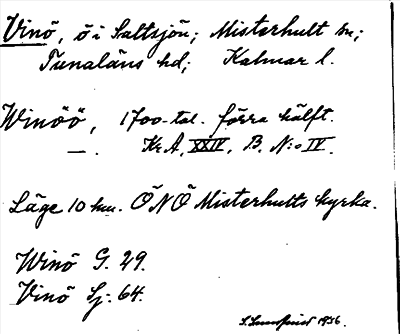 Vinö, ö i Saltsjön; Misterhult sn;
Tunaläns hd; Kalmar l.
Winöö, 1700-tal. förra hälft.
—. Kr A, XXIV, B. N:o IV.
Läge 10 km. ÖNÖ Misterhults kyrka.
Winö G. 29.
Vinö Sj. 64.
1956.